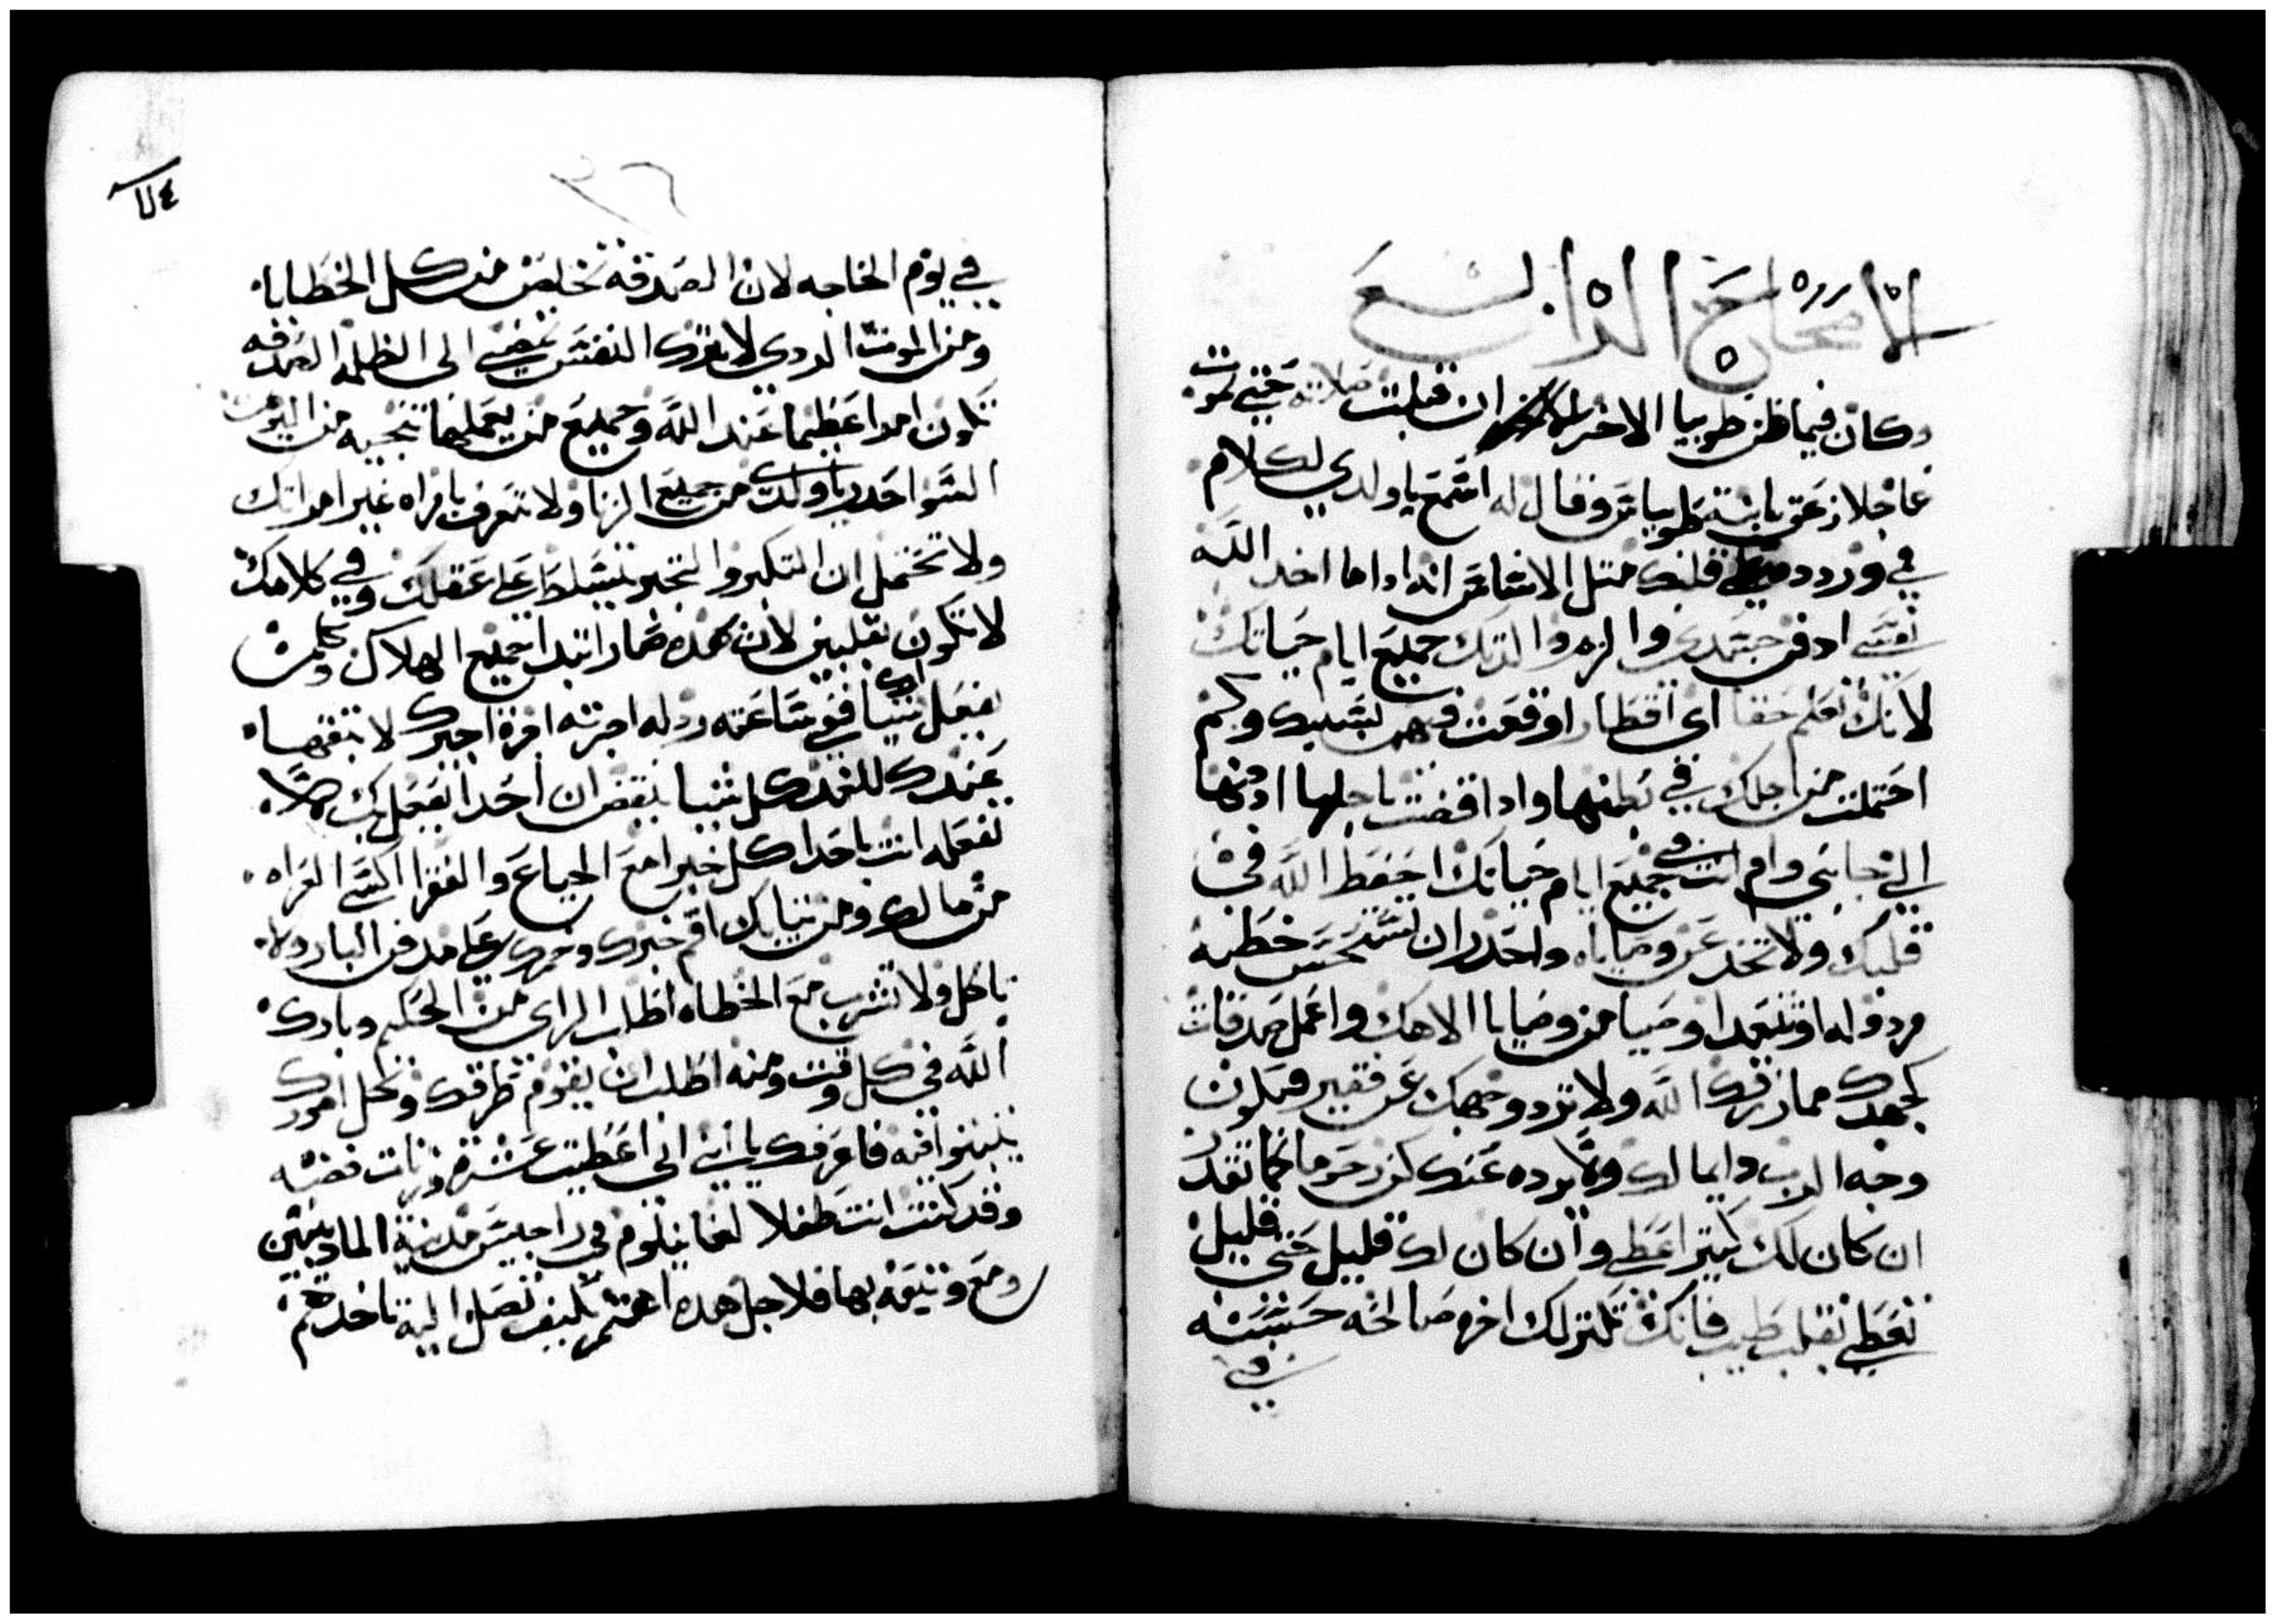 الاصحاح الرابع
وكان فيما ظن طوبيا الاخر ان قبلت صلاته حتى يموت
عاجلا زعق بابنة طوبياس وقال له اسمع يا ولدي لكلام
في وردد قلبك متل الاساس انه اداما اخد الله
نفسي ادفن جسدي والزم والدتك جميع ايام حياتك
لانك تعلم حقا اي اقطار اوقعت في بسببك وكم
احتملت من اجلك في بطنها وادا اقضت باجلها ادفنها
الي جانبي وام انت في جميع ايام حياتك احفظ الله في
قلبك ولا تخد عن وصاياه واحدر ان تستحسن خطيه
مردوله او تتعدا وصيا من وصايا الاهك واعمل صدقات
كجهدك مما رزقك الله ولا ترد وجهك عن فقير فيكون
وجه الرب دايما لك ولا يرده عنك كن رحوما كما تقدر
ان كان لك كتير اعطي وان كان لك قليل حتى قليل
تعطي بقلب طيب فانك تكنز لك اخره صالحه حسنته
في
في يوم الحاجه لان الصدقه تخلص من كل الخطايا
ومن الموت الردي لا تترك النفس تمضي الى الظلمه الصدقه
تكون امرا عظيما عند الله وجميع من يعملها تنجيه من الموت
السو احدر يا ولدي من جميع الزنا ولا تتعرف بامراه غير امراتك
ولا تحتمل ان التكبر والتجبر يتسلط على عقلك وفي كلامك
لا تكون بقلبين لان بهده صار ابتدا جميع الهلاك ومن
يفعل لك شيا ففي ساعته رد له اجرته اجرة اجيرك لا تبقيها
عندك للغد كل شيا تبغض ان احدا يفعل بك لا
تفعله انت باحدا كل خبزا مع الجياع والفقرا اكسي العراه
من مالك ومن تيابك اقم خبزك وخمرك على مدفن البار ولا
تاكل ولا تشرب مع الخطاه اطلب الراى من الحكيم وبارك
الله في كل وقت ومنه اطلب ان يقوم طرقك وكل امورك
يتبتوا فيه فاعرفك يا ابني اني اعطيت عشرة وزنات فضه
وقد كنت انت طفلا لغابيلوم في راجيس مدينة الماديين
ومع وتيقه بها فلاجل هدا اهتم كيف تصل اليه تاخدهم